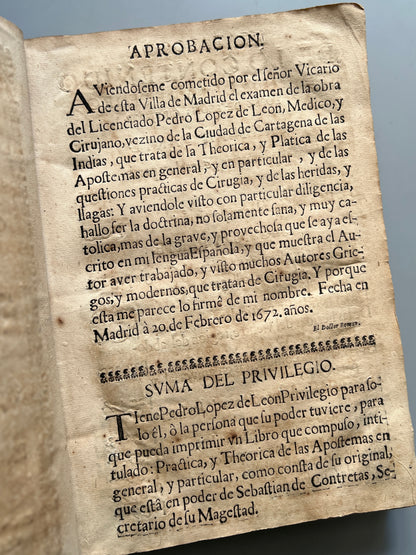 APROBACION.
AViendoseme cometido por el señor Vicario
de esta Villa de Madrid el examen de la obra
del Licenciado Pedro Lopez de Leon, Medico, y
Cirujano, vezino de la Ciudad de Cartagena de las
Indias, que trata de la Theorica, y Platica de las
Apostemas en general, y en particular, y de las
questiones practicas de Cirugia, y de las heridas, y
llagas: Y aviendole visto con particular diligencia,
hallo ser la doctrina, no solamente sana, y muy ca-
tolica, mas de la grave, y provechosa que se aya es-
crito en mi lengua Española, y que muestra el Au-
tor aver trabajado, y visto muchos Autores Grie-
gos, y modernos, que tratan de Cirugia. Y porque
esta me parece lo firmé de mi nombre. Fecha en
Madrid à 20. de Febrero de 1672. años.
El Doctor Roman.
SVMA DEL PRIVILEGIO.
TIene Pedro Lopez de Leon Privilegio para so-
lo él, ò la persona que su poder tuviere, para
que pueda imprimir vn Libro que compuso, inti-
tulado: Practica, y Theorica de las Apostemas en
general, y particular, como consta de su original,
que està en poder de Sebastian de Contretas, Se-
cretario de su Magestad.